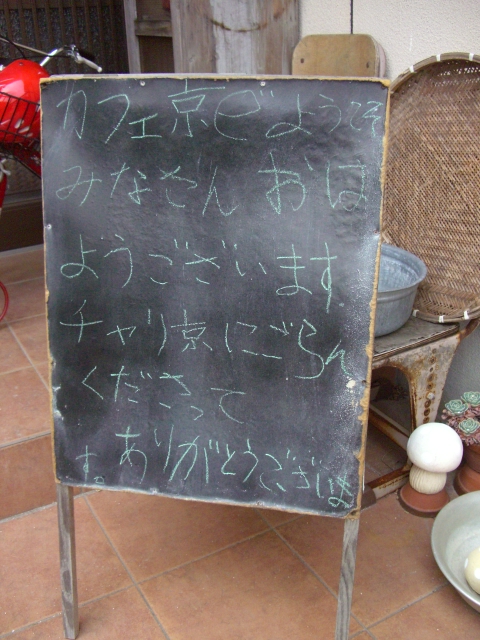 カフェ京でようこそ
みなさん おは
ようございます
チャリ京にごらん
くださって
ありがとうございま
す。